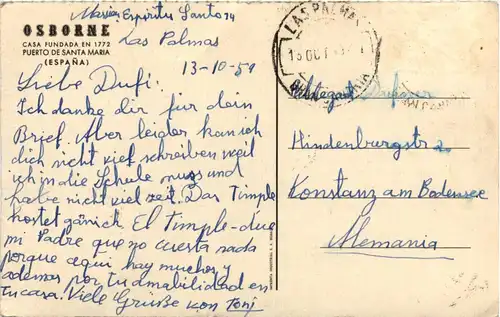 Maria, Espiritu Santo 74
Las Palmas
OSBORNE
CASA FUNDADA EN 1772
PUERTO DE SANTA MARIA
(ESPAÑA)
13-10-59
Liebe Dufi:
Ich danke dir für dein
Brief. Aber leider kan ich
dich nicht vief schreiben weil
ich in die Schule muss und
habe nicht viel zeit. Das Timple
kostet gänich. El Timple-dice
mi Padre que no cuesta nada
porque aqui hay muchos y
ademas por tu admabilidad en
tu casa. Viele Grüsse von Toni
LAS PALMAS
Hindenburgstr
Konstanz am Bodensee
Alemania